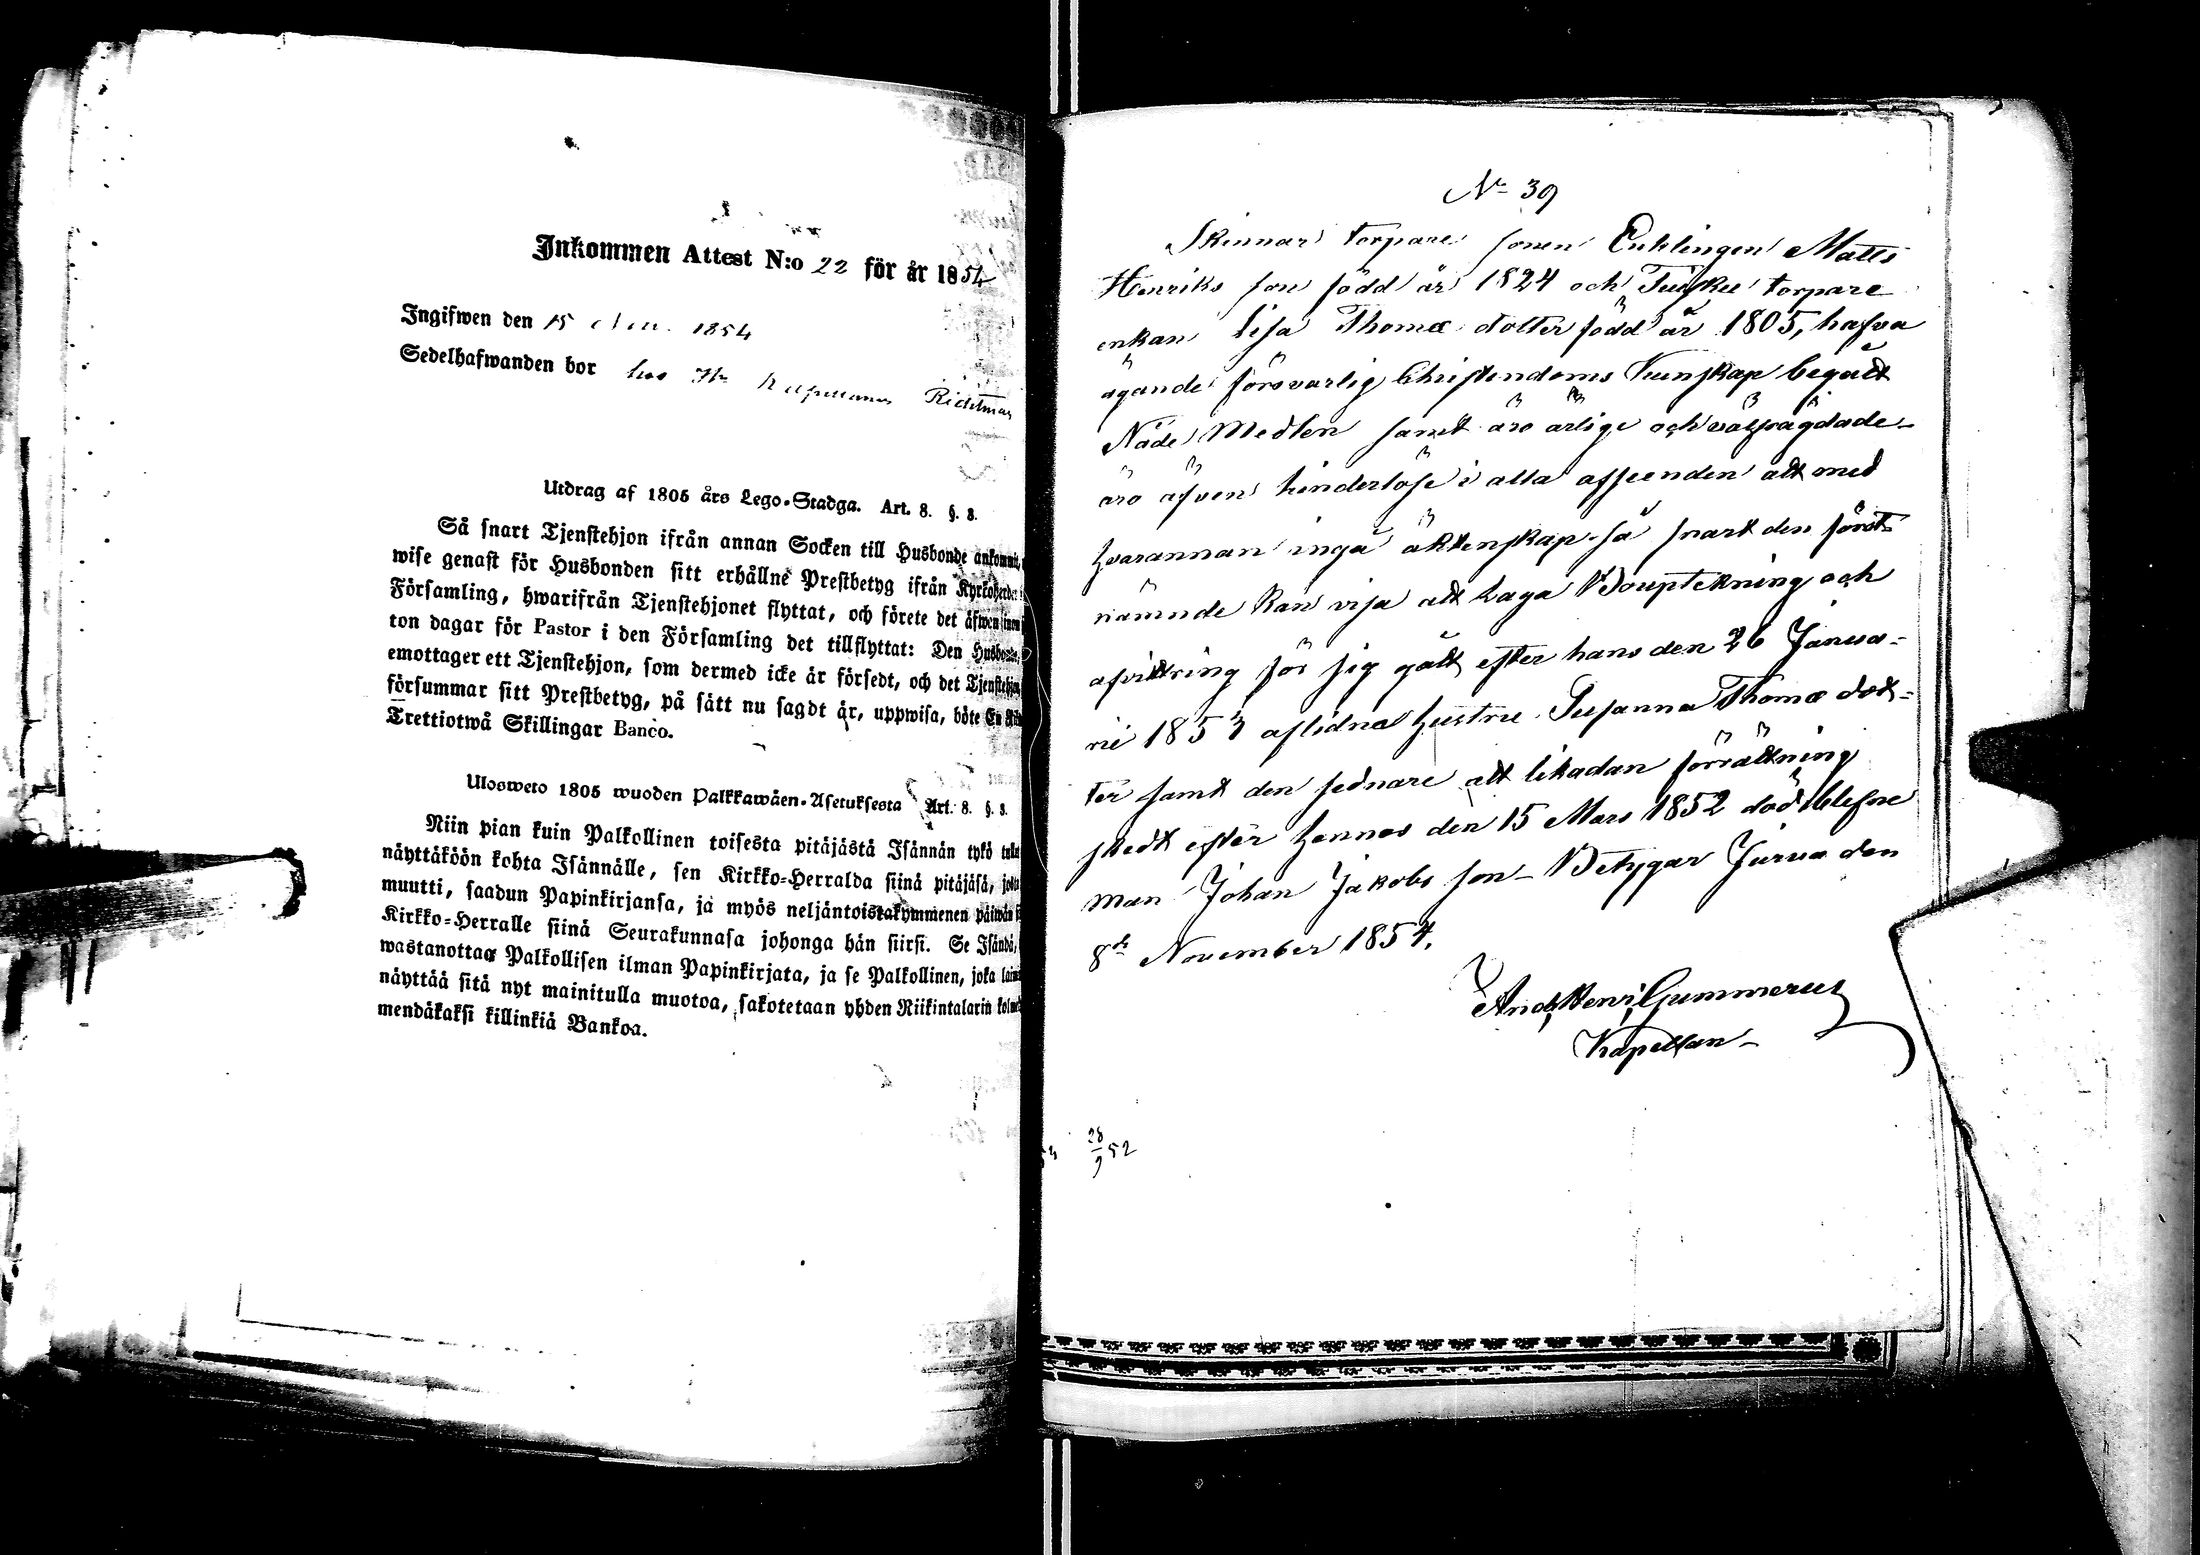 Inkommen Attest N:o 22 för år 1854
Ingifwen den 15 Nov. 1854
Sedelhafwanden bor hos Hr Kapellanen
Utdrag af 1805 års Lego-Stadga. Art. 8. §. 8.
Så snart Tjenstehjon ifrån annan Socken till Husbonde
wise genast för Husbonden sitt erhållne Prestbetyg ifrån
Församling, hwarifrån Tjenstehjonet flyttat, och förete det äfwen
ton dagar för Pastor i den Församling det tillflyttat: Den
emottager ett Tjenstehjon, som dermed icke är försedt, och det
försummar sitt Prestbetyg, på sätt nu sagdt är, uppwisa, böte En
Trettiotwå Skillingar Banco.
Ulosweto 1805 wuoden Palkkawäen-Asetuksesta Art. 8. §. 8.
Niin pian kuin Palkollinen toisesta pitäjästä Isännän tykö
näyttäköön kohta Isännälle, sen Kirkko-Herralda siinä pitäjäsä,
muutti, saadun Papinkirjansa, ja myös neljäntoistakymmenen
Kirkko-Herralle siinä Seurakunnasa johonga hän siirsi. Se
wastanottaa Palkollisen ilman Papinkirjata, ja se Palkollinen, joka
näyttää sitä nyt mainitulla muotoa, sakotetaan yhden Riikintalarin
mendäkaksi killinkiä Bankoa.
No 39
Skinnar torpare sonen Matts
Henriks son född år 1824 och torpare
enkan Lisa Thomæ dotter född år 1805, hafva
ägande försvarlig Christendoms Kunskap begått
Nåde Medlen samt äro ärlige och välfrägdade
äro äfven hinderlöse i alla afseenden att med
hvarannan ingå äktenskap så snart den först
nämnde kan visa att Laga Bouptekning och
afvittring för sig gått efter hans den 26 Janua-
rii 1853 aflidna hustru Susanna Thomæ dot-
ter samt den sednare att likadan förrättning
skedt efter hennes den 15 Mars 1852 död blefne
man Johan Jakobs son Betygar Jurva den
8de November 1854.
And. Henr. Gummerus
Kapellan
28/9 52